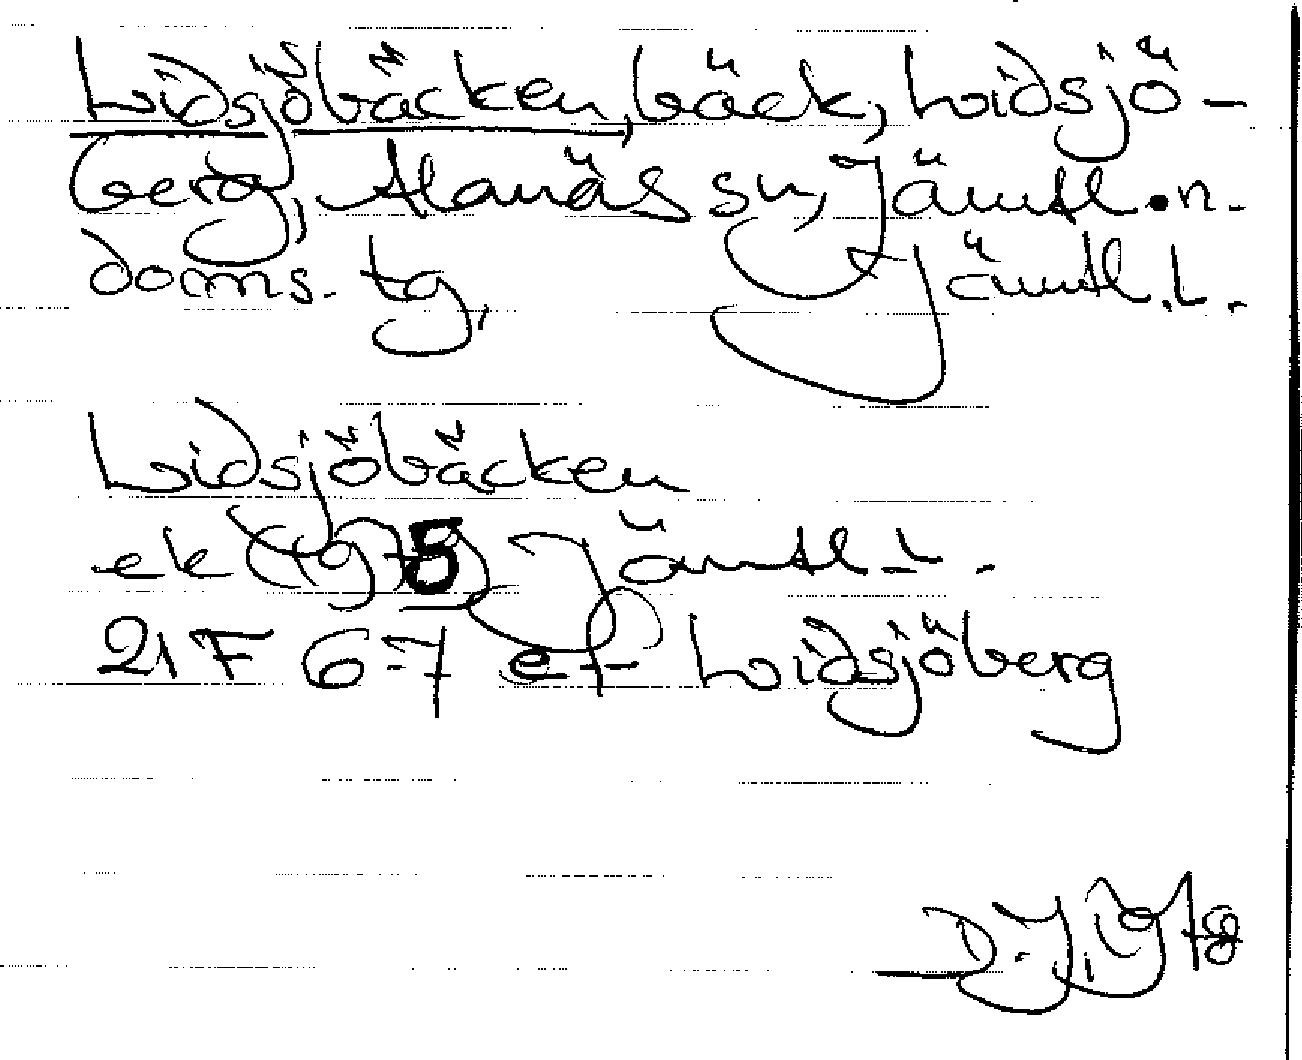 Lidsjöbäcken, bäck, Lidsjö-
berg, Alanäs sn, Jämtl. n.
doms. tg, Jämtl. L.
Lidsjöbäcken
ek (1975) Jämtl. L.
21F 6-7 ef Lidsjöberg
1978